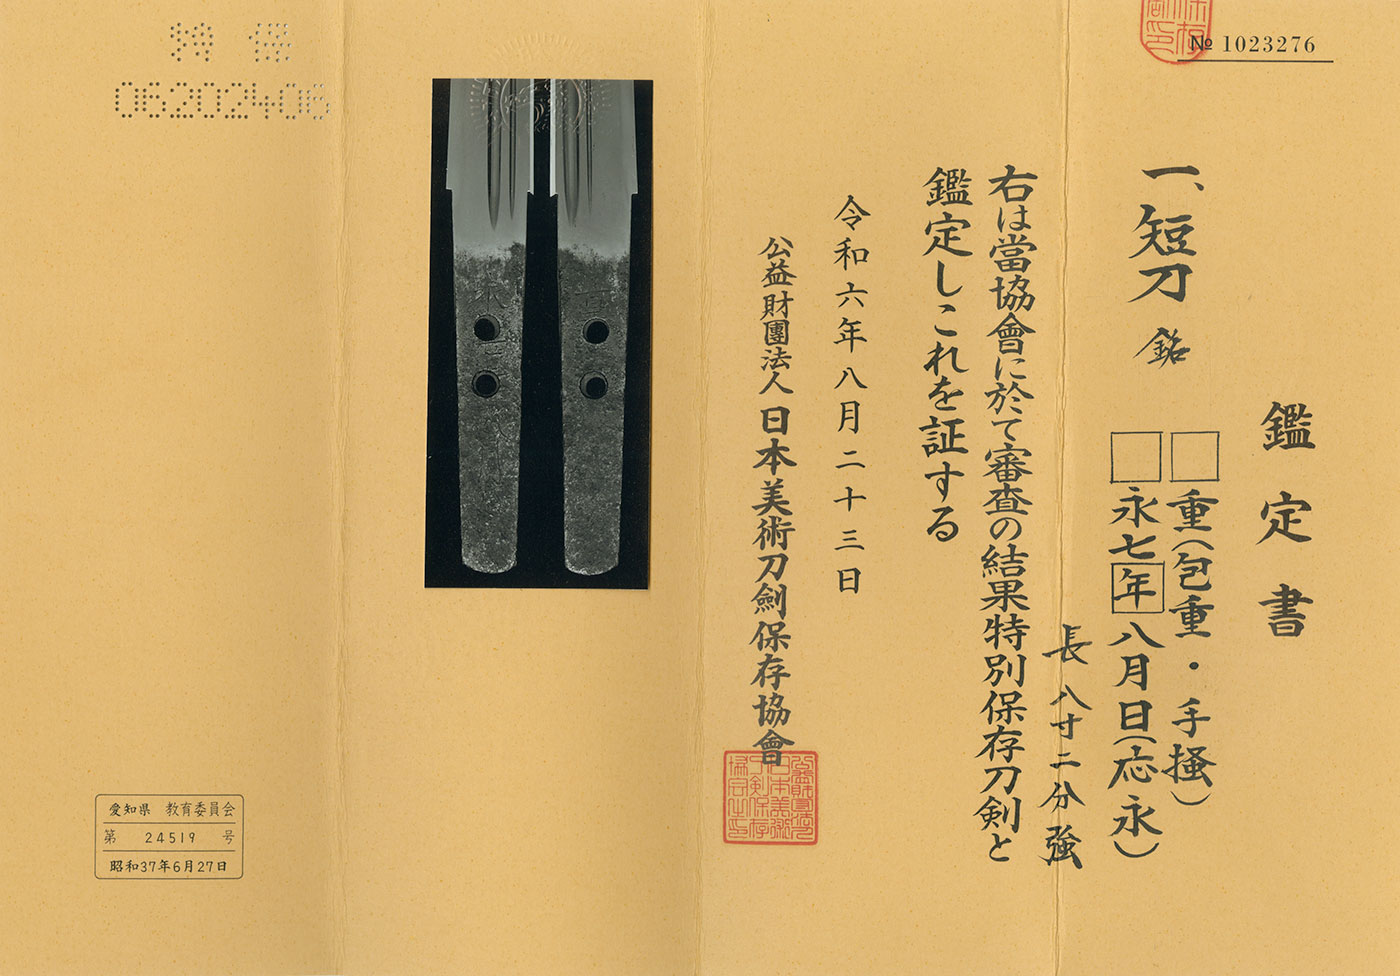 № 1023276
鑑定書
一、短刀 銘 □重(包重・手掻)
□永七年八月日(応永)
長 八寸二分強
右は當協會に於て審査の結果特別保存刀剣と
鑑定しこれを証する
令和六年八月二十三日
公益財團法人 日本美術刀劍保存協會
特 保
06202406
愛知県 教育委員会
第 24519 号
昭和37年6月27日